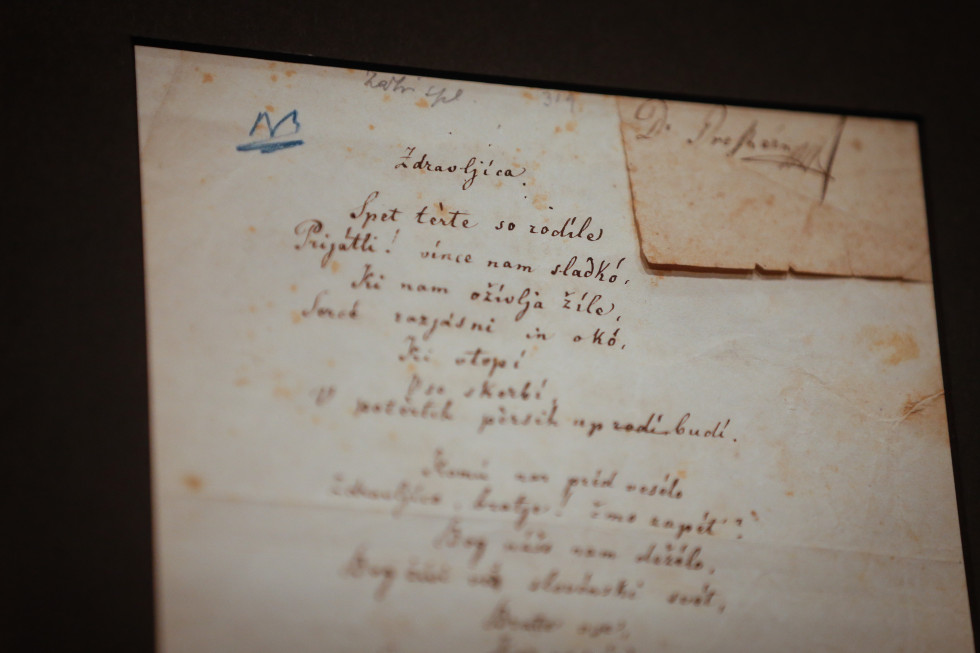 Dr. Preshern
Zdravljica.
Spet tèrte so rodíle
Prijátli! vínce nam sladkó,
Ki nam ožívlja žíle,
Sercé razjásni in okó,
Ki stopí
Vse skerbí,
V potèrtih pèrsih up rodí budí.
Komú nar préd vesélo
Zdravljíco, bratje! čmo zapét'?
Bog našo nam dežélo,
Bog živi ves slovénski svét,
Bratte vse,